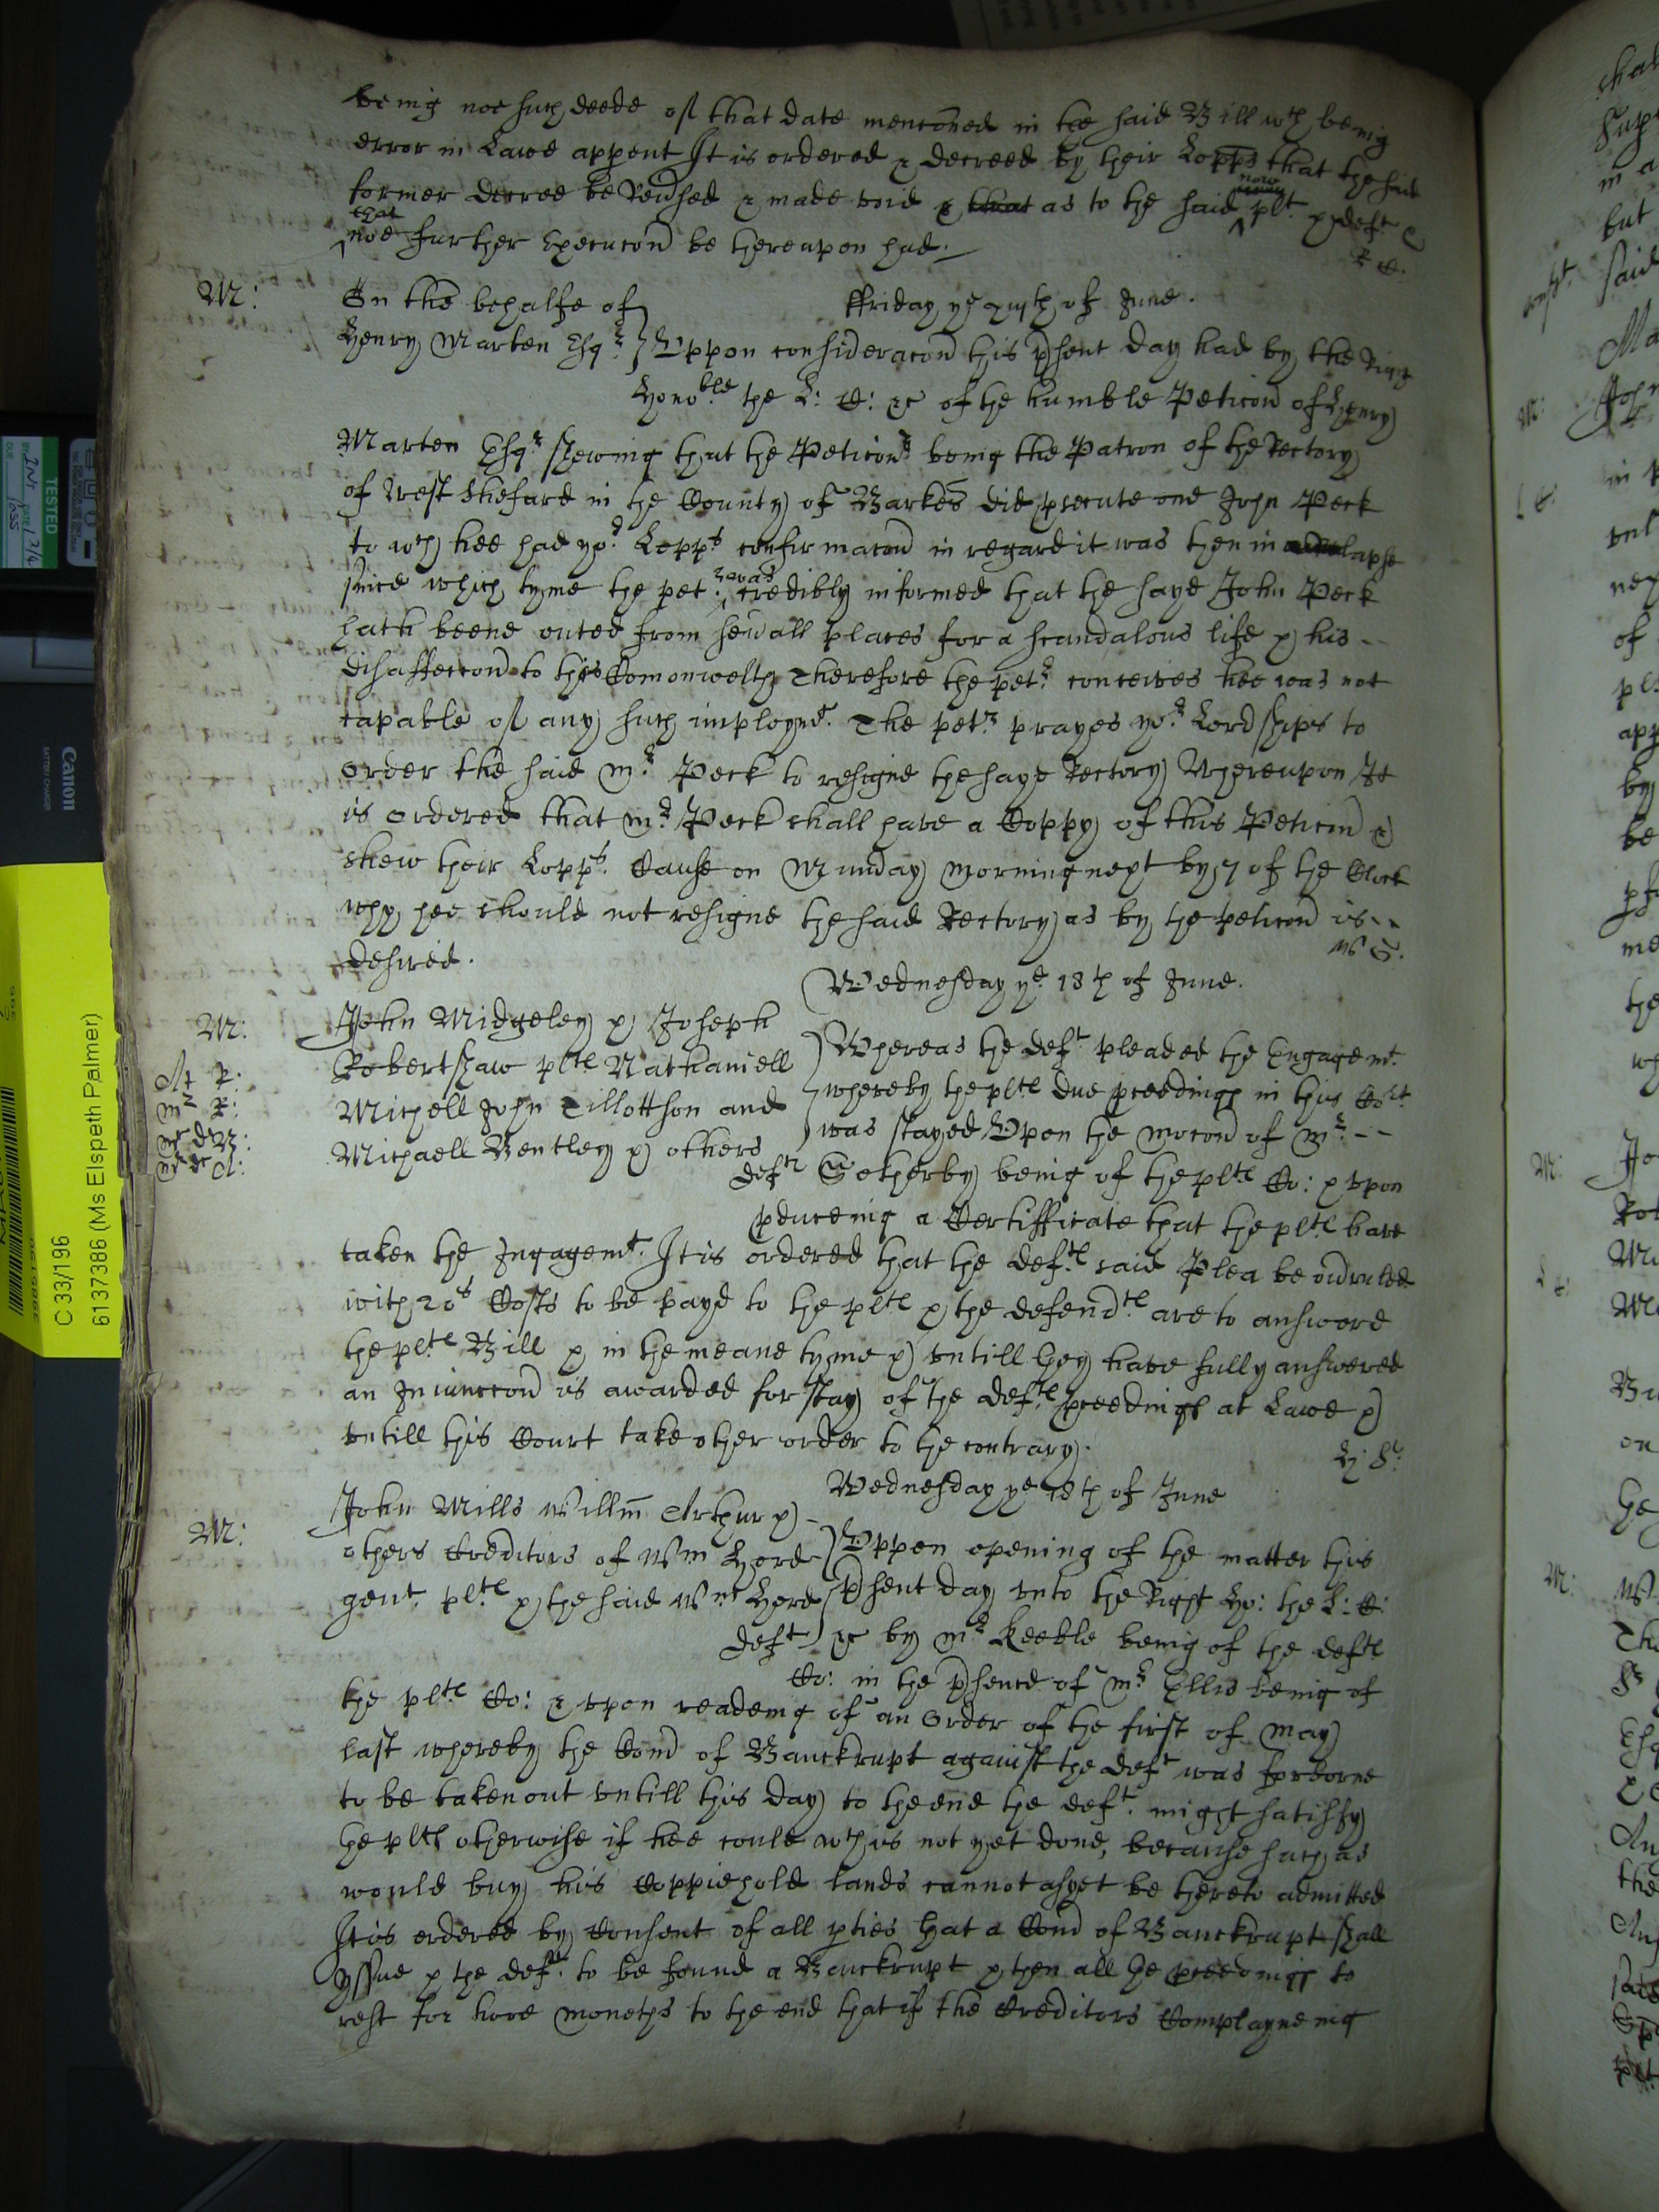 being noe such deede of that date menconed in the said Bill wch being
error in Lawe apparent It is ordered & decreed by their Lopps that the said
former decree be Reversed & made void & that as to the said now plt & deft &
that noe further Execucon be thereupon had.
R C.
M:
On the behalfe of
Henry Marten Esqr
ffriday ye 27th of June.
Uppon consideracon this psent day had by the Right
Honoble the L: C: &c of the humble Peticon of Henry
Marten Esqr shewing that the Peticonr being the Patron of the Rectory
of West Shefard in the County of Barkes did psecute one John Peck
to wch hee had yor Lopps confirmacon in regard it was then in lapse
since which tyme the petr was credibly informed that the saye John Peck
hath beene outed from severall places for a scandalous life & his --
disaffeccon to this Comonwelth Therefore the petr conceives hee was not
capable of any such imploymt. The petr prayes yor Lordships to
order the said mr Peck to resigne the saye Rectory Whereupon It
is ordered that mr Peck shall have a Coppy of this Peticon &
shew their Lopps. Cause on Munday morning next by 7 of the Clock
why hee should not resigne the said Rectory as by the peticon is --
desired.
W G.
Wednesday ye 18th of June.
M:
At R:
Mr R:
John Midgeley & Joseph
Robertshaw pltes Nathaniell
Michell John Tillottson and
Michaell Bentley & others
deftes
Whereas the deft pleaded the Engagemt
whereby the pltes due pceedings in this Cort
was stayed Upon the mocon of mr --
Sotherby being of the pltes Co: & upon
pduceing a Certifficate that the pltes have
taken the Ingagemt. It is ordered that the deftes said Plea be overuled
with 20s Costs to be payd to the pltes & the defendtes are to answere
the pltes Bill & in the meane tyme & untill they have fully answered
an Iniunccon is awarded for stay of the deftes pceedings at Lawe &
untill this Court take other order to the contrary.
Wednesday ye 18th of June
M:
John Mills Willm Arthur &
others Creditors of Wm Hord
gent. pltes & the said Wm Hord
deft
Uppon opening of the matter this
psent day unto the Right Ho: the L: C:
&c by mr Keeble being of the deftes
Co: in the psence of mr Ellis being of
the pltes Co: & upon readeing of an Order of the first of May
last whereby the Comn of Banckrupt against the deft was forborne
to be taken out untill this day to the end the deft. might satisfy
the pltes otherwise if hee could wch is not yet done, because such as
would buy his Coppiehold lands cannot as yet be thereto admitted
It is ordered by Consent of all pties that a Comn of Banckrupt shall
yssue & the deft. to be found a Banckrupt & then all the pceedings to
rest for three moneths to the end that if the Creditors Complayneing
TESTED
Canon
C 33/196
6137386 (Ms Elspeth Palmer)